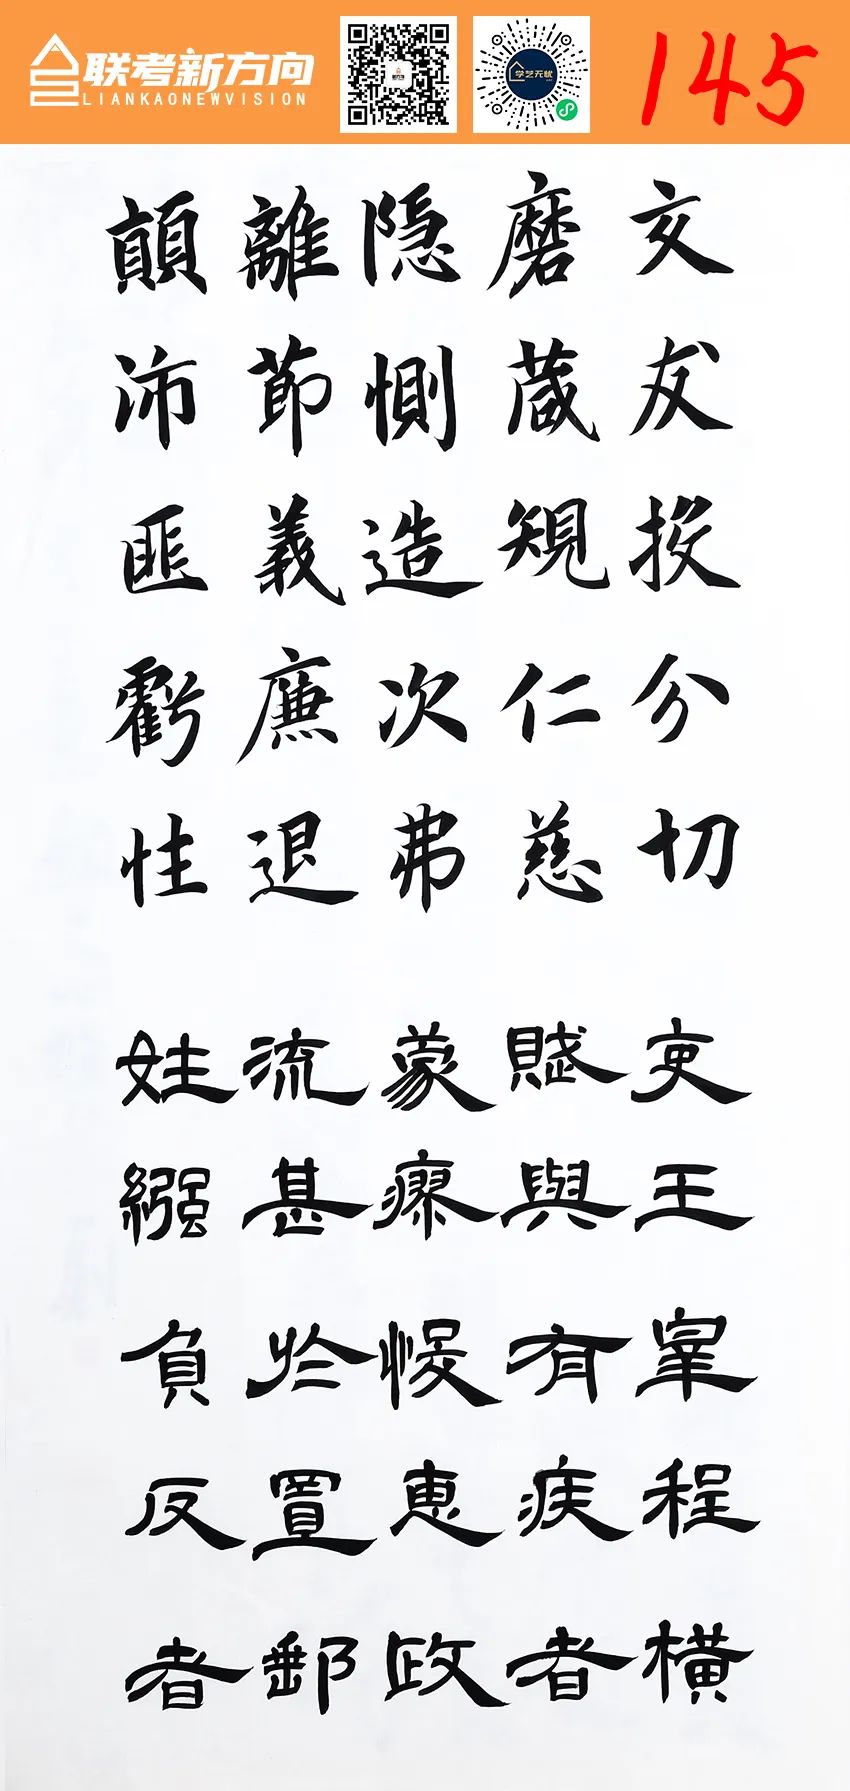 联考新方向
LIANKAONEWVISION
学艺无忧
145
交友投分切
磨蔵規仁慈
隐惻造次弗
離節義廉退
顛沛匪虧性
吏王皋程橫
賦與有疾者
蒙瘳悛惠政
流甚於置郵
姓繦負反者